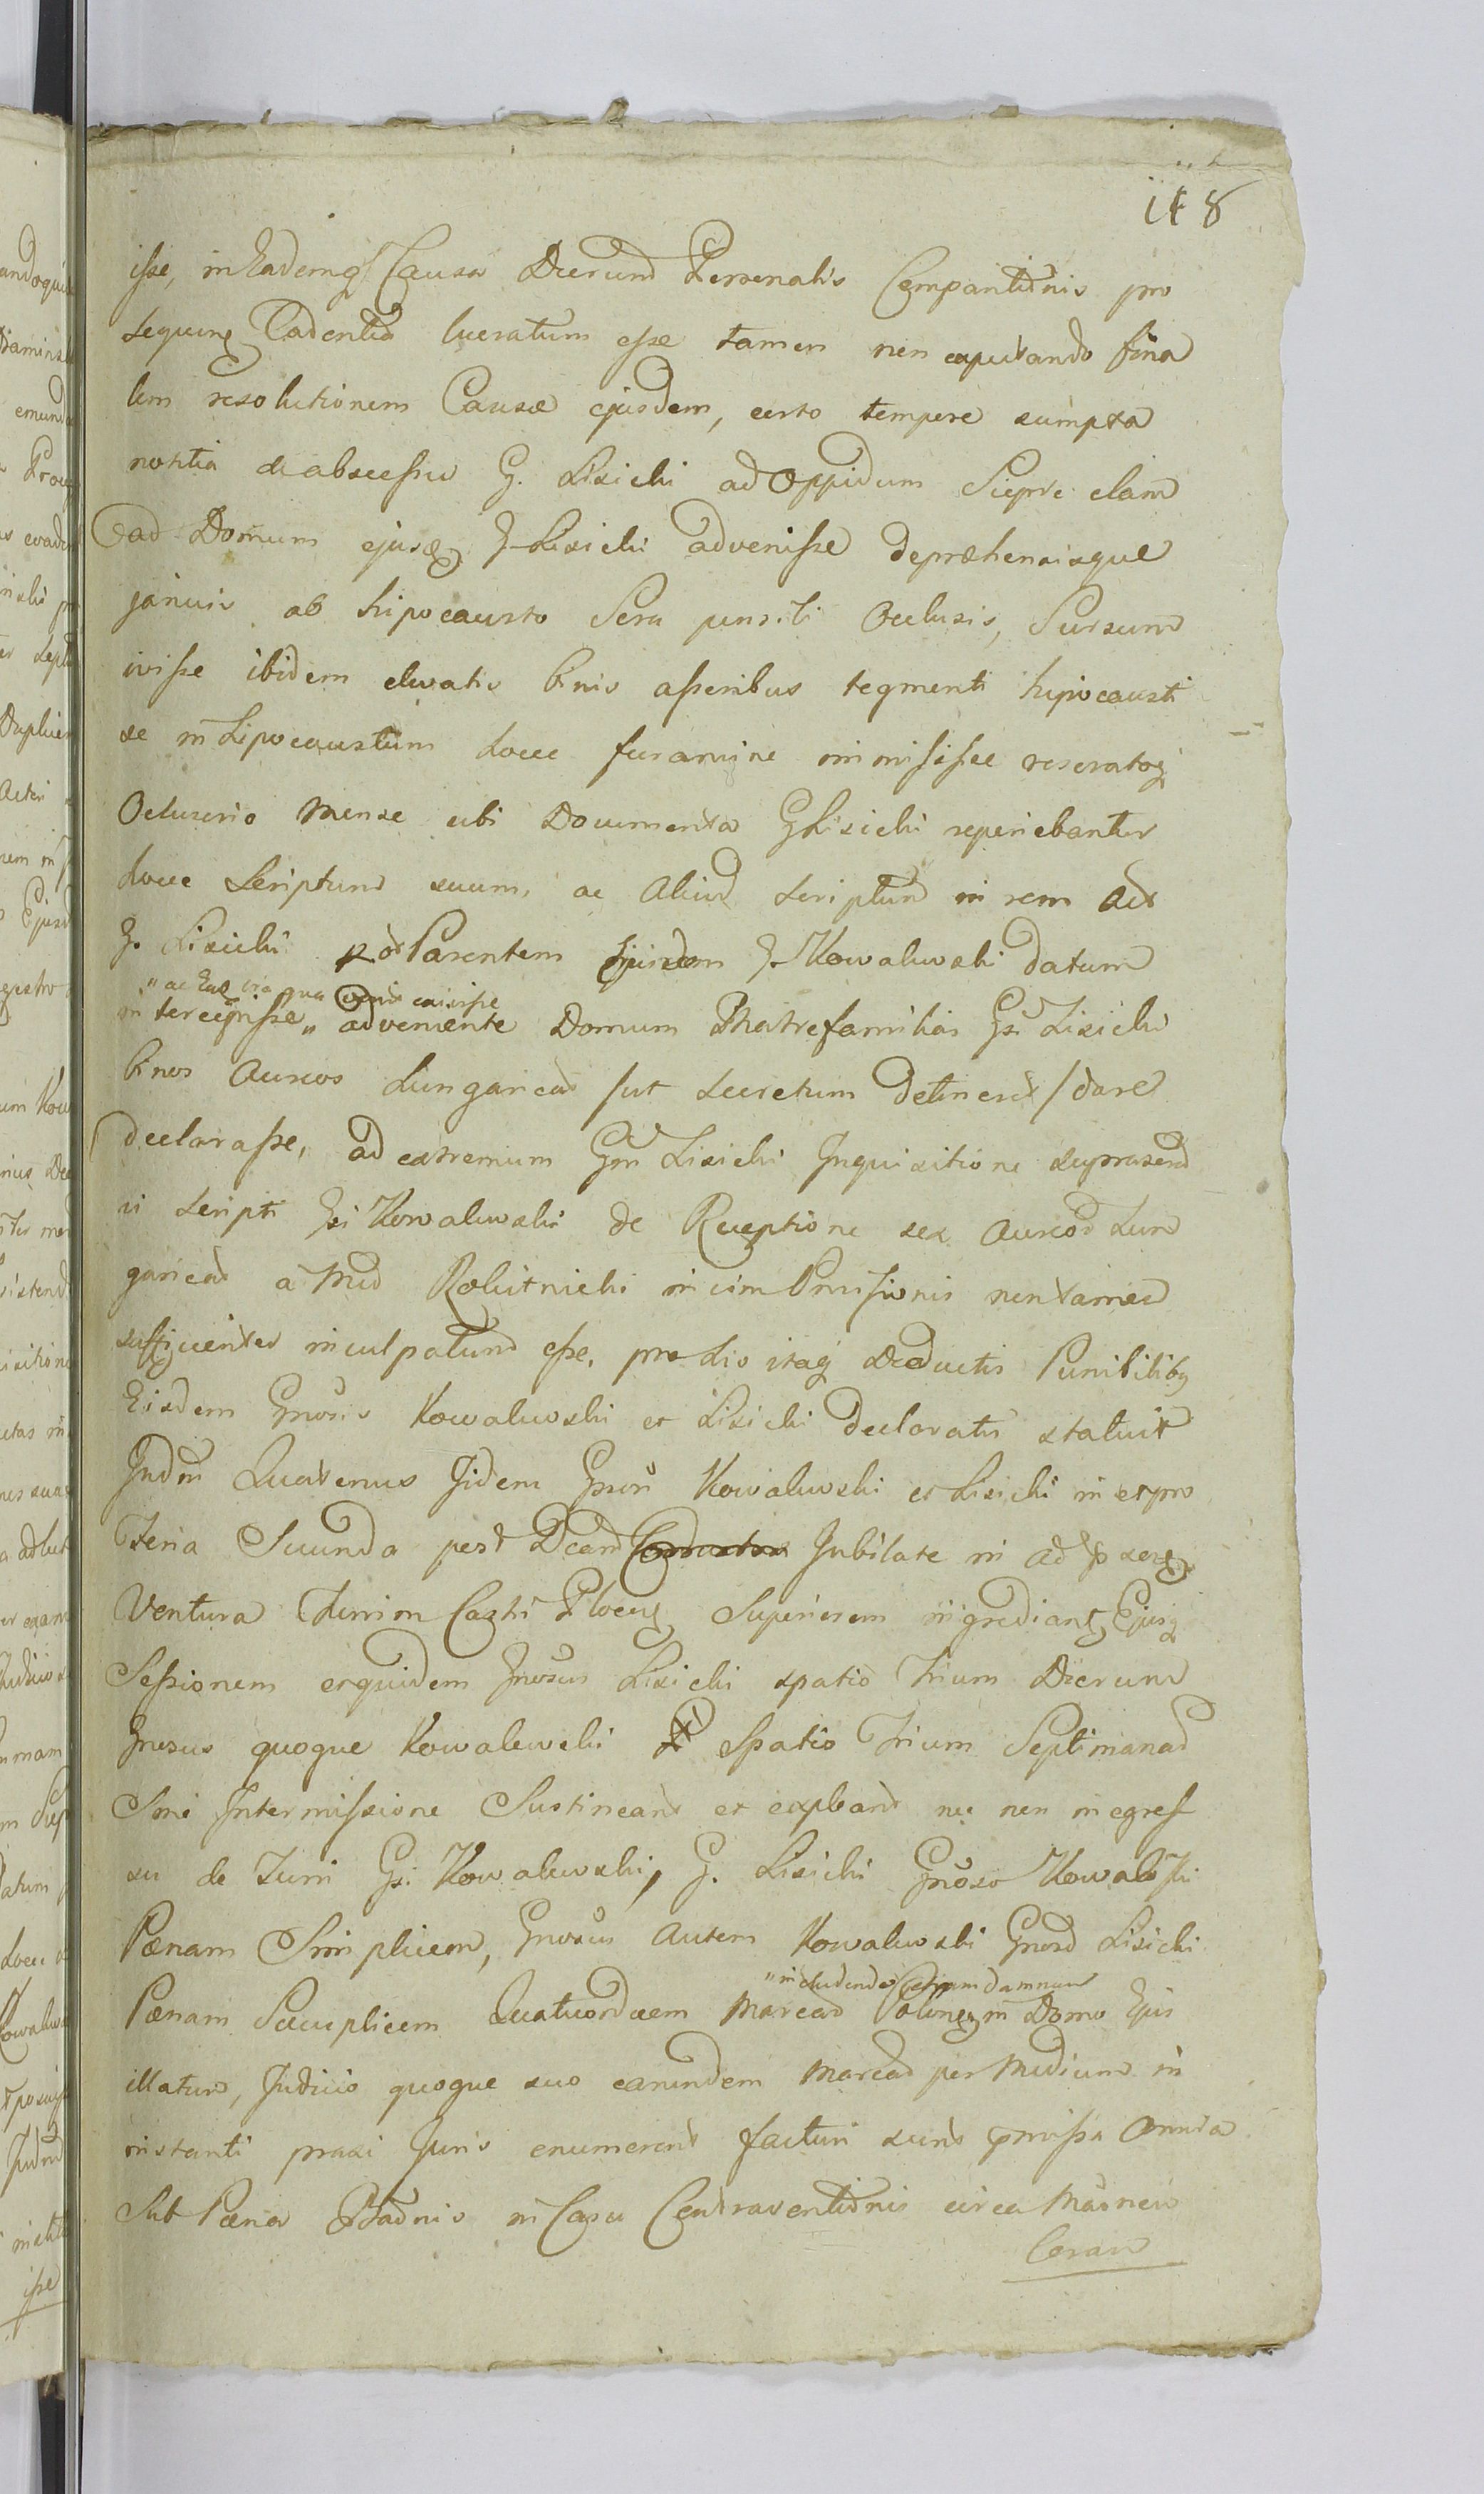 148
isse, in Eademq Causa Dierum Personalis Comparitionis pro
sequing Cadentia lucratum esse tamen non expectando fina
lem resolutionem Causæ ejusdem, certo tempore sumpta
notitia de abscessu G. Lisicki ad Oppidum Sieprc clam
ad Domum ejusd G. Lisicki advenisse depræhensisque
januis ab hipocausto Sera pensili Occlusis, Sursum
ivisse ibidem elevatis binis asseribus tegmenti hipocausti
se in hipocaustum hocce foramine immisisse reseratoq
Oclusorio Mensæ ubi Documenta G Lisicki reperiebantur
hocce Scriptum suum, ac Aliud scriptum in rem
G. Lisicki Parentem Ejusdem G. Kowalewski datum
"ac Ead via qua venit exivisse
intercepisse" adveniente Domum Matrefamilias Gsi Lisicki
binos Aureos Hungarical /ut secretum detineret/ dare
declarasse, ad extremum Gsm Lisicki Inquisitione
vi scripti Gsi Kowalewski de Receptione sex Aureor Hun
garical a Mco Rokitnicki in vim Provisionis non tamen
sufficienter inculpatum esse, pro his itaq Deductis Punibilibq
Eisdem Gnosis Kowalewski et Lisicki declaratis statuit
Judm Quatenus Iidem Gnosi Kowalewski et Lisicki in et pro
Feria Secunda post Dcam Conductus Jubilate in ad
Ventura Turrim Castri Plocen Superiorem ingrediant, Ejusq
Sessionem et quidem Gnosus Lisicki spatio Trium Dierum
Gnosus quoque Kowalewski Spatio Trium Septimanar
Sine Intermissione Sustineant et expleant nec non in egres
su de Turri Gsi Kowalewski, G. Lisicki Gnoso Kowalewski
Pænam Simplicem, Gnosus Autem Kowalewski Gnoso Lisicki
"includendo etiam damnum
Pænam Quatuordecem Marcar in Domo Ejus
illatum, Judicio quoque suo earundem Marcar per Medium in
instanti praxi Juris enumerent facturi sunt præmissa Omnia
Sub Pæna Bannis in Casu Contraventionis circa
Coram